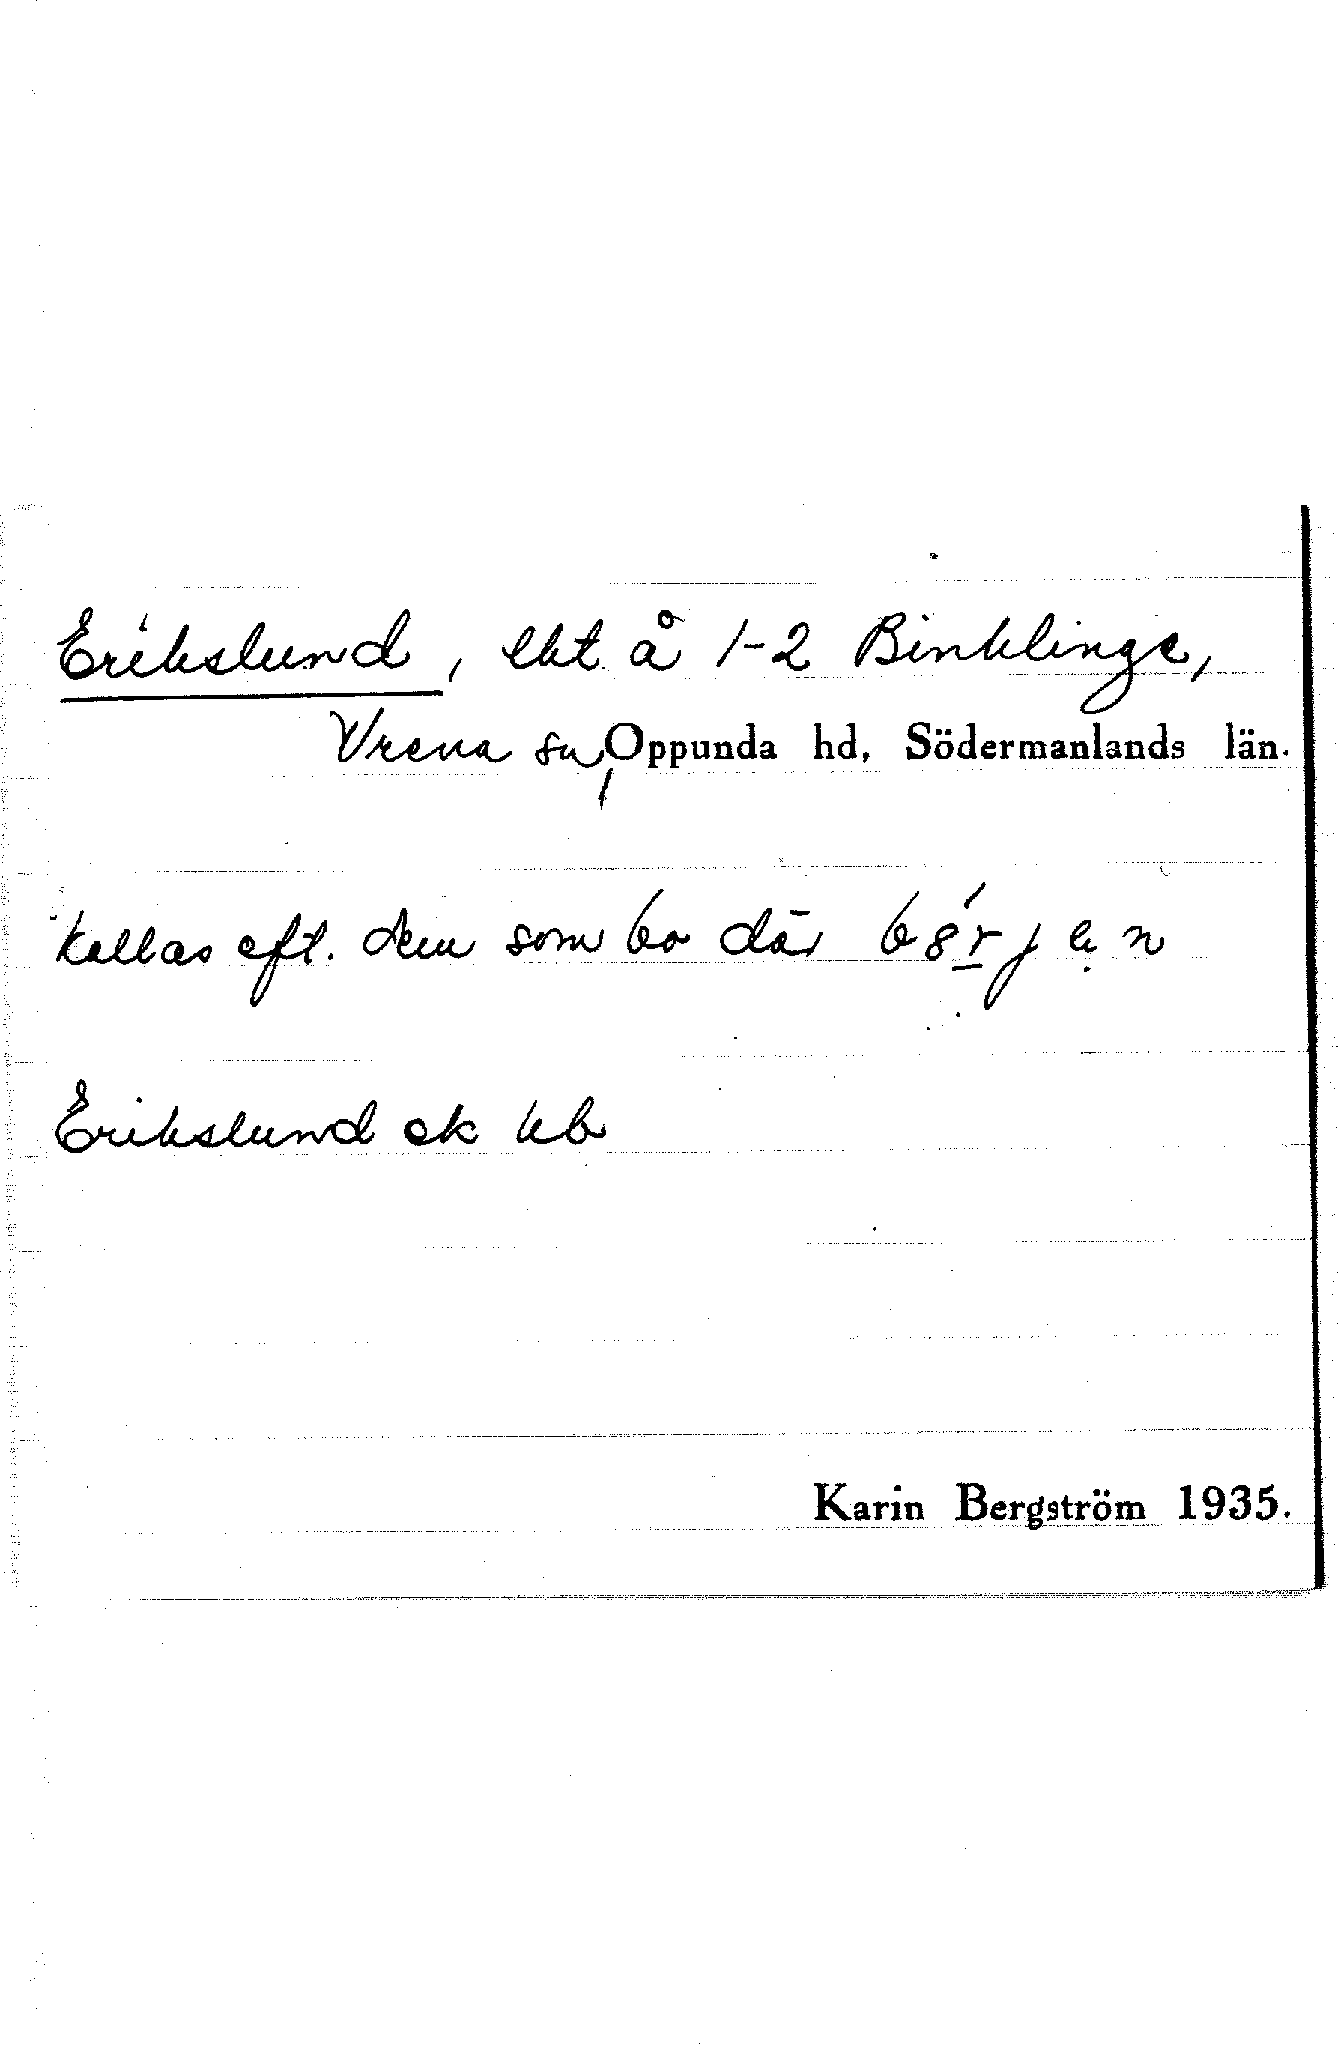 Erikslund, lht å 1-2 Binklinge,
Vrena sn, Oppunda hd, Södermanlands län.
Kallas eft. dem som bo där
Erikslund ek kb
Karin Bergström 1935.